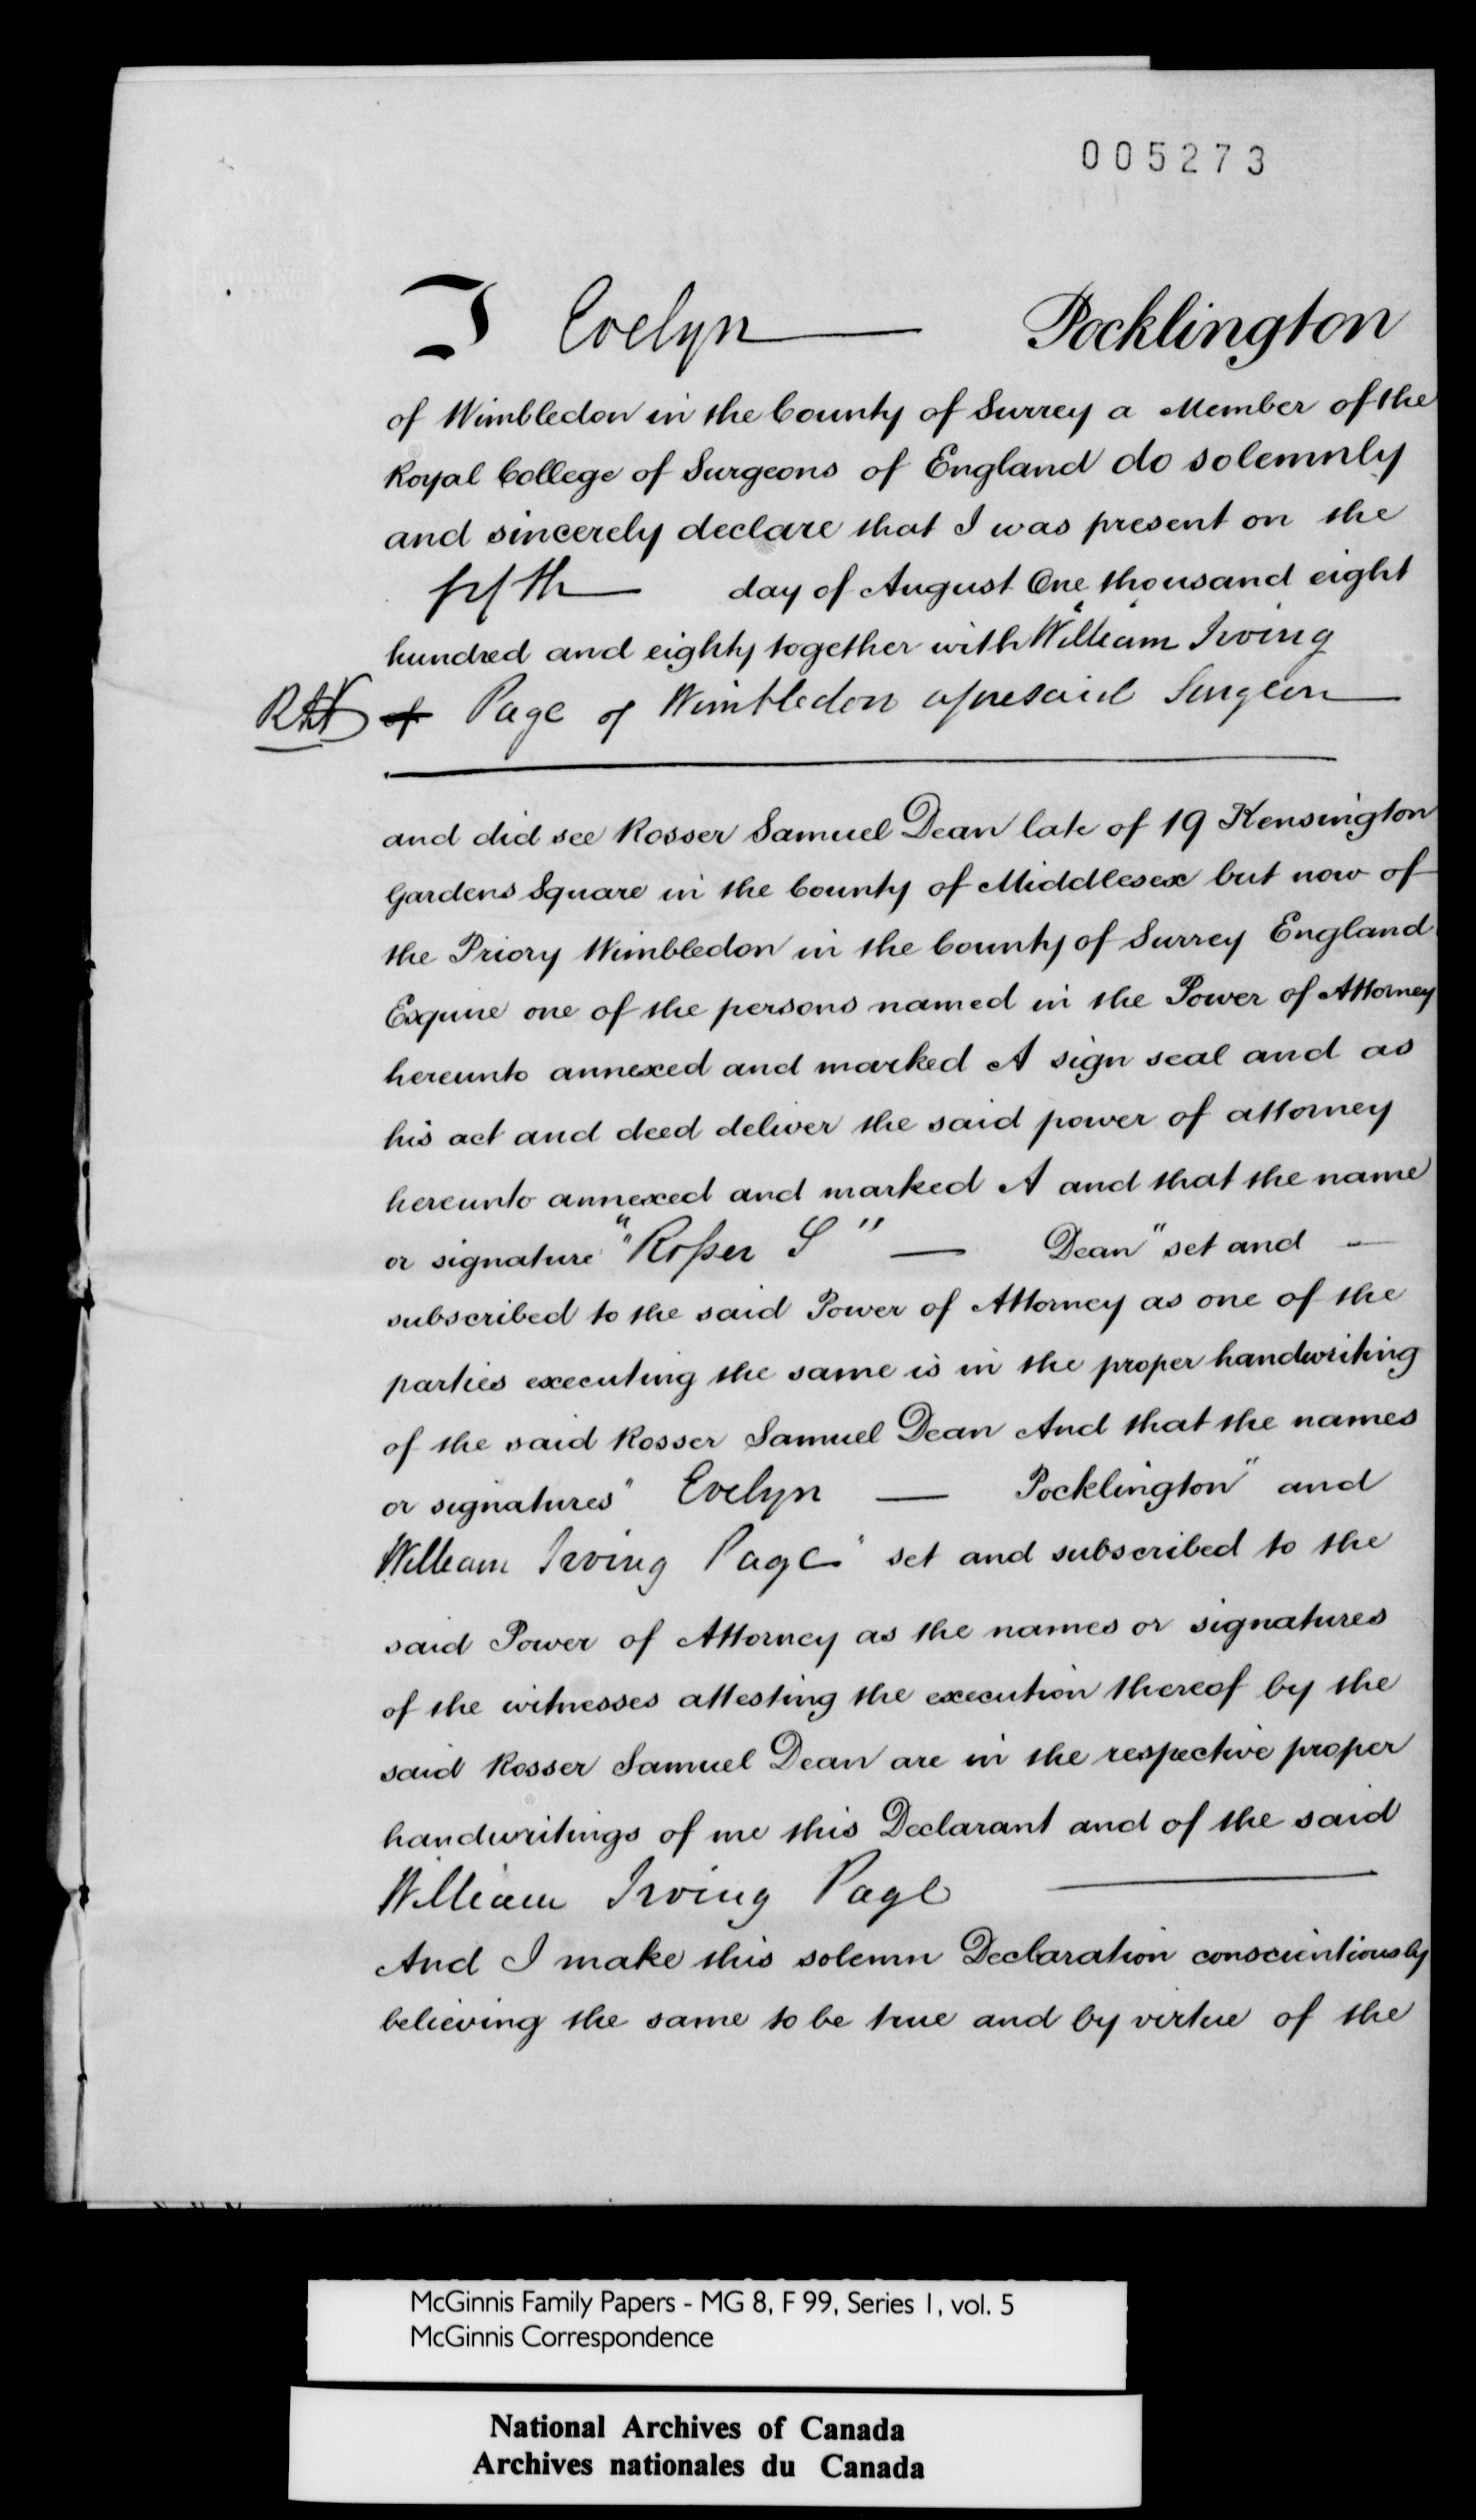 005273
I Evelyn — Pocklington
of Wimbledon in the County of Surrey a Member of the
Royal College of Surgeons of England do solemnly
and sincerely declare that I was present on the
fifth — day of August One thousand eight
hundred and eighty together with William Irving
of Page of Wimbledon aforesaid Surgeon —
and did see Rosser Samuel Dean late of 19 Kensington
Gardens Square in the County of Middlesex but now of
the Priory Wimbledon in the County of Surrey England
Esquire one of the persons named in the Power of Attorney
hereunto annexed and marked A sign seal and as
his act and deed deliver the said power of attorney
hereunto annexed and marked A and that the name
or signature "Rosser S" — Dean" set and —
subscribed to the said Power of Attorney as one of the
parties executing the same is in the proper handwriting
of the said Rosser Samuel Dean And that the names
or signatures "Evelyn — Pocklington" and
William Irving Page" set and subscribed to the
said Power of Attorney as the names or signatures
of the witnesses attesting the execution thereof by the
said Rosser Samuel Dean are in the respective proper
handwritings of me this Declarant and of the said
William Irving Page —
And I make this solemn Declaration conscientiously
believing the same to be true and by virtue of the
McGinnis Family Papers - MG 8, F 99, Series 1, vol. 5
McGinnis Correspondence
National Archives of Canada
Archives nationales du Canada